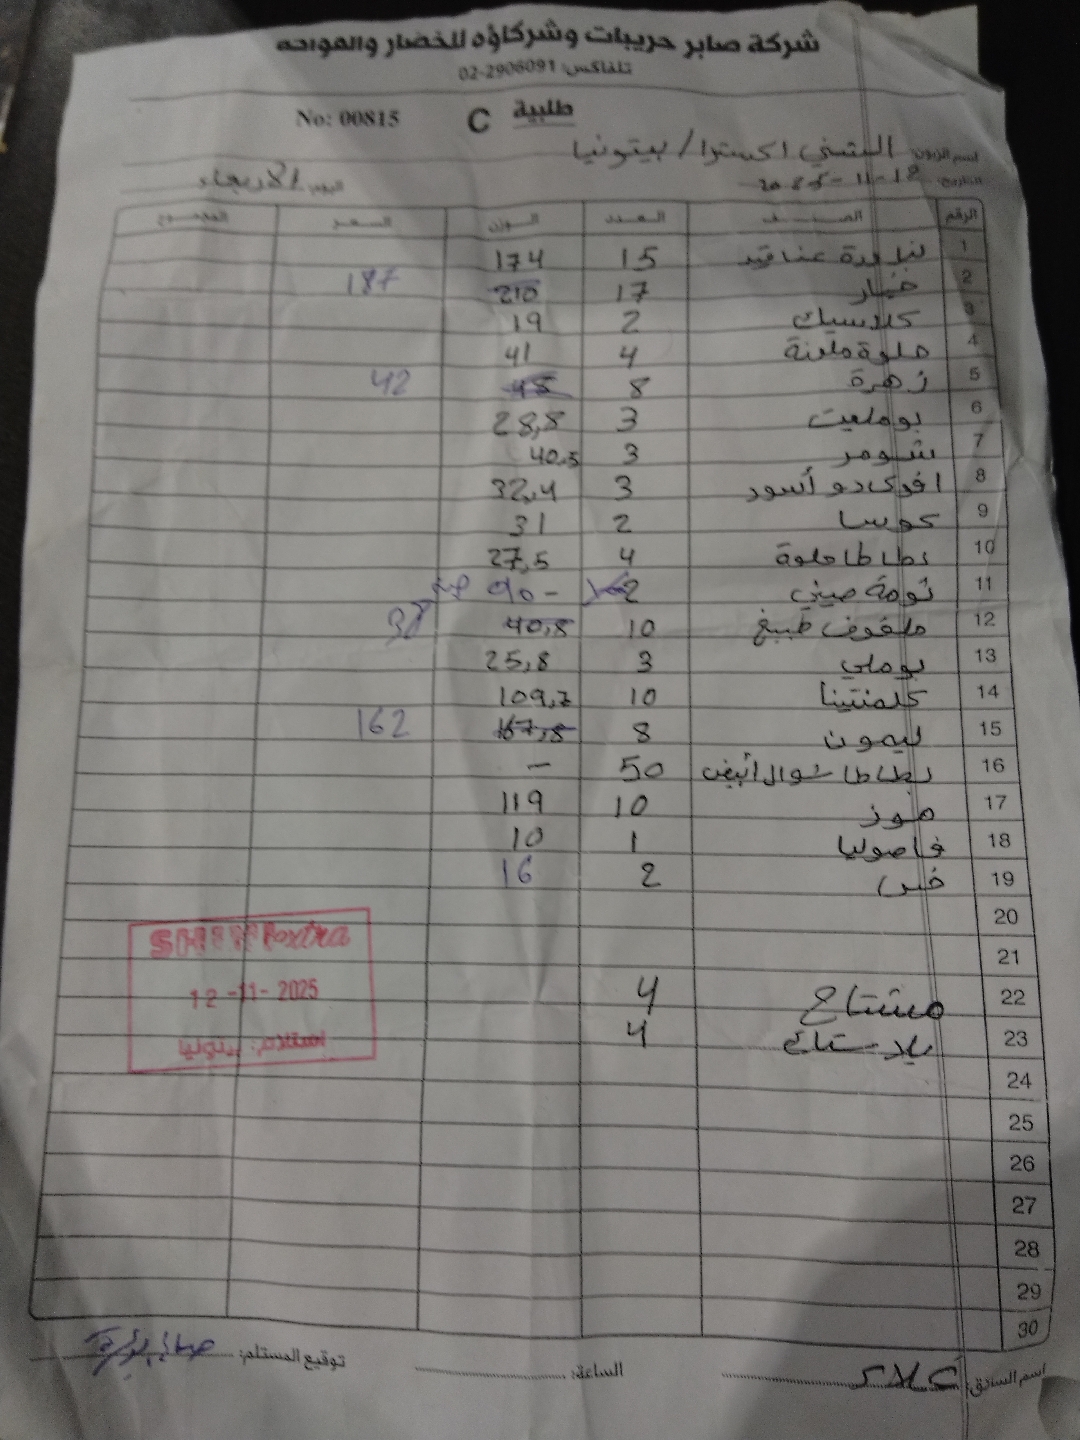 شركة صابر حريبات وشركاؤه للخضار والفواكه
تلفاكس: 02-2906091
No: 00815 C طلبية
اسم الزبون: الشني اكسترا / بيتونيا
التاريخ: 12-11-2025 اليوم: الأربعاء
الرقم الصنف العدد الوزن السعر المجموع
1 بندورة عناقيد 15 174
2 خيار 17 210 187
3 كلاسيك 2 19
4 حلوة ملونة 4 41
5 زهرة 8 48 42
6 بوملیت 3 28,8
7 شومر 3 40.5
8 افوكادو أسود 3 32,4
9 كوسا 2 31
10 بطاطا حلوة 4 27,5
11 ثومة صيني 2 90 -
12 ملفوف طبيخ 10 40,8 38
13 بوملي 3 25,8
14 كلمنتينا 10 109,7
15 ليمون 8 167,8 162
16 بطاطا شوال أبيض 50 -
17 موز 10 119
18 فاصوليا 1 10
19 خس 2 16
20
21
22 مشتاح 4
23 بلاستك 4
24
25
26
27
28
29
30
extra
12-11-2025
اسم السائق: علاء الساعة: توقيع المستلم: